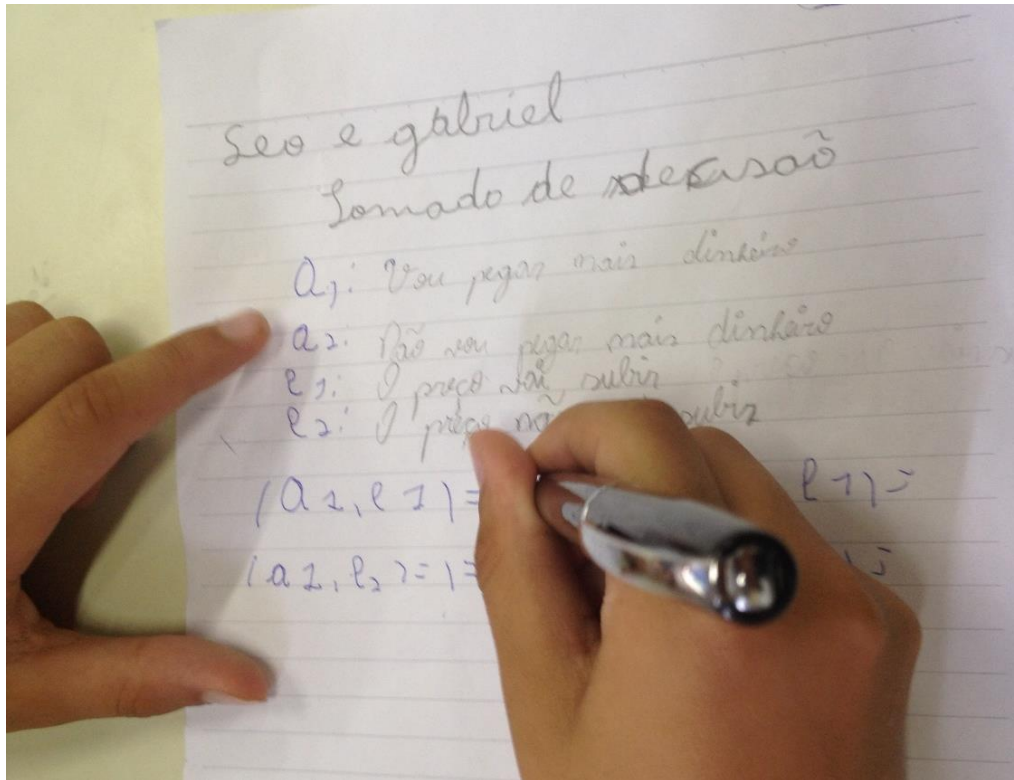 Leo e gabriel
Tomado de decasaõ
a1: Vou pegar mais dinheiro
a2: Não vou pegar mais dinheiro
e1: O preço vai subir
e2: O preço não subir
(a1, e1) = e1) =
(a1, e2) = ) = =